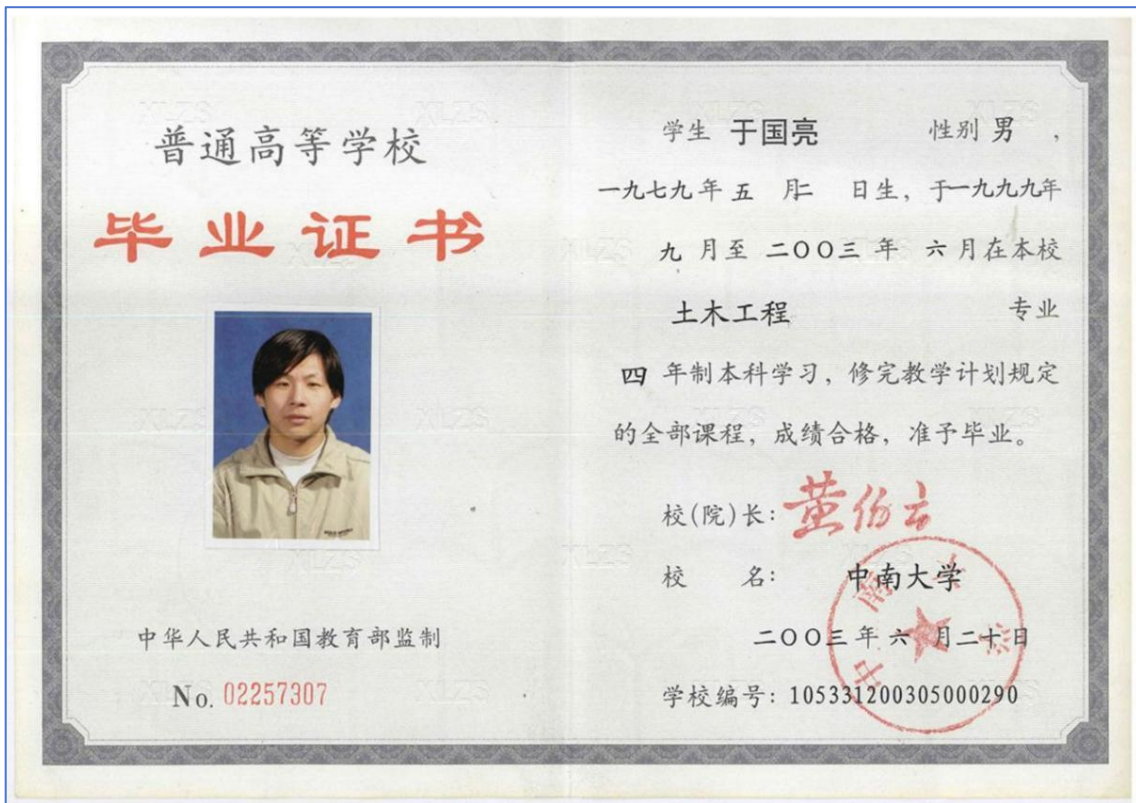 普通高等学校
毕业证书
中华人民共和国教育部监制
No. 02257307
学生 于国亮 性别 男 ，
一九七九年 五 月二 日生，于一九九九年
九 月至 二〇〇三 年 六月在本校
土木工程 专业
四 年制本科学习，修完教学计划规定
的全部课程，成绩合格，准予毕业。
校(院)长：黄伯云
校 名： 中南大学
二〇〇三年六 月二十日
学校编号：105331200305000290
中南大学
XLZS